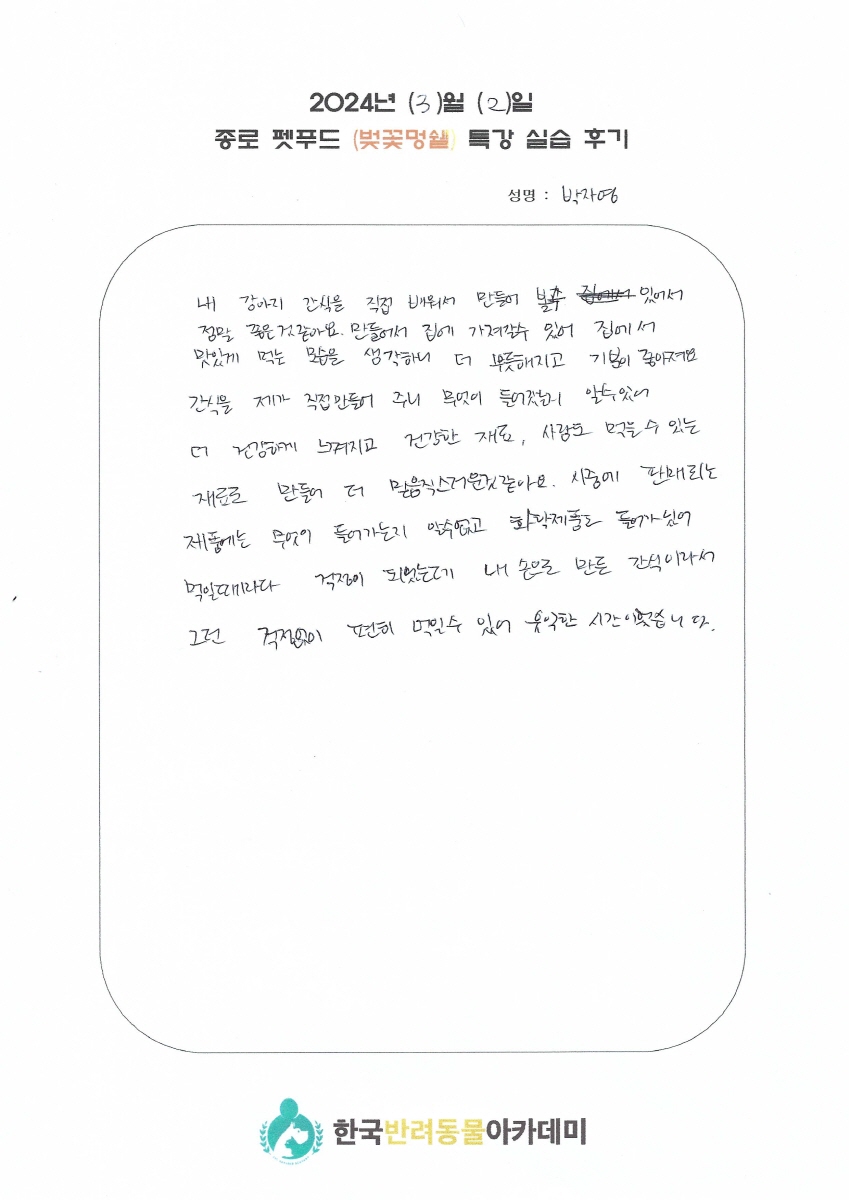 2024년 (3)월 (2)일
종로 펫푸드 (벚꽃멍쉘) 특강 실습 후기
성명 : 박자영
내 강아지 간식을 직접 배워서 만들어 볼수 있어서
정말 좋은것같아요. 만들어서 집에 가져갈수 있어 집에서
맛있게 먹는 모습을 생각하니 더 뿌듯해지고 기분이 좋아져요
간식을 제가 직접만들어 주니 무엇이 들어갔는지 알수있어
더 건강하게 느껴지고 건강한 재료, 사람도 먹을수 있는
재료로 만들어 더 믿음직스러운것같아요. 시중에 판매되는
제품에는 무엇이 들어가는지 알수없고 화학제품도 들어가있어
먹일때마다 걱정이 되었는데 내 손으로 만든 간식이라서
그런 걱정없이 편히 먹일수 있어 유익한 시간이었습니다.
한국반려동물아카데미